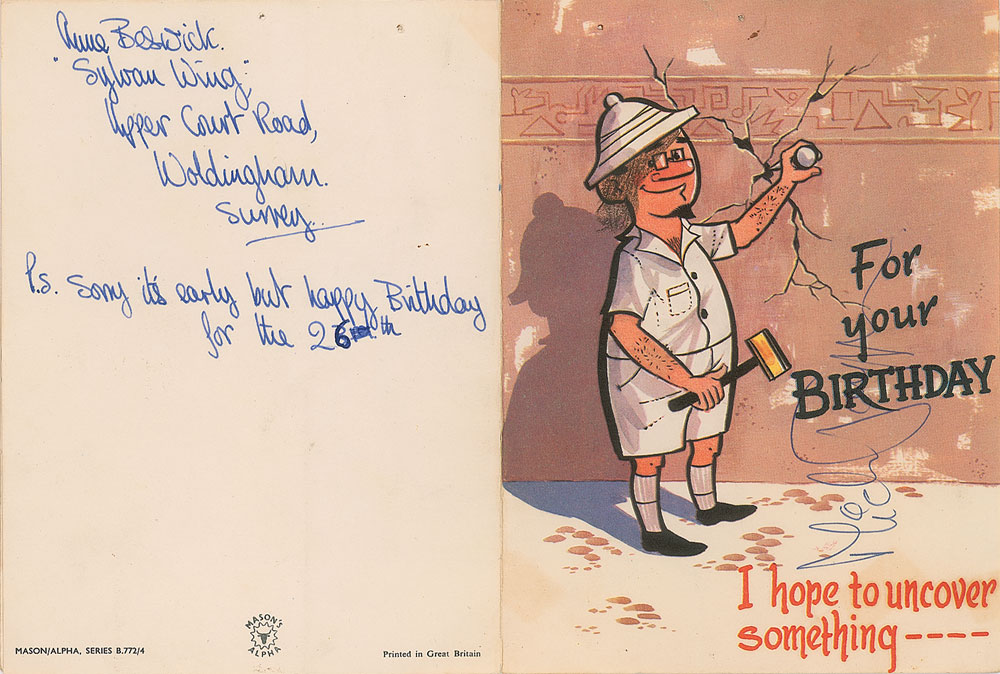 Anne Beswick.
"Sylvan Wing",
Upper Court Road,
Woldingham.
Surrey
P.S. Sorry it's early but happy Birthday
for the 26th
MASON'S
ALPHA
MASON/ALPHA, SERIES B.772/4
Printed in Great Britain
For
your
BIRTHDAY
I hope to uncover
something ----